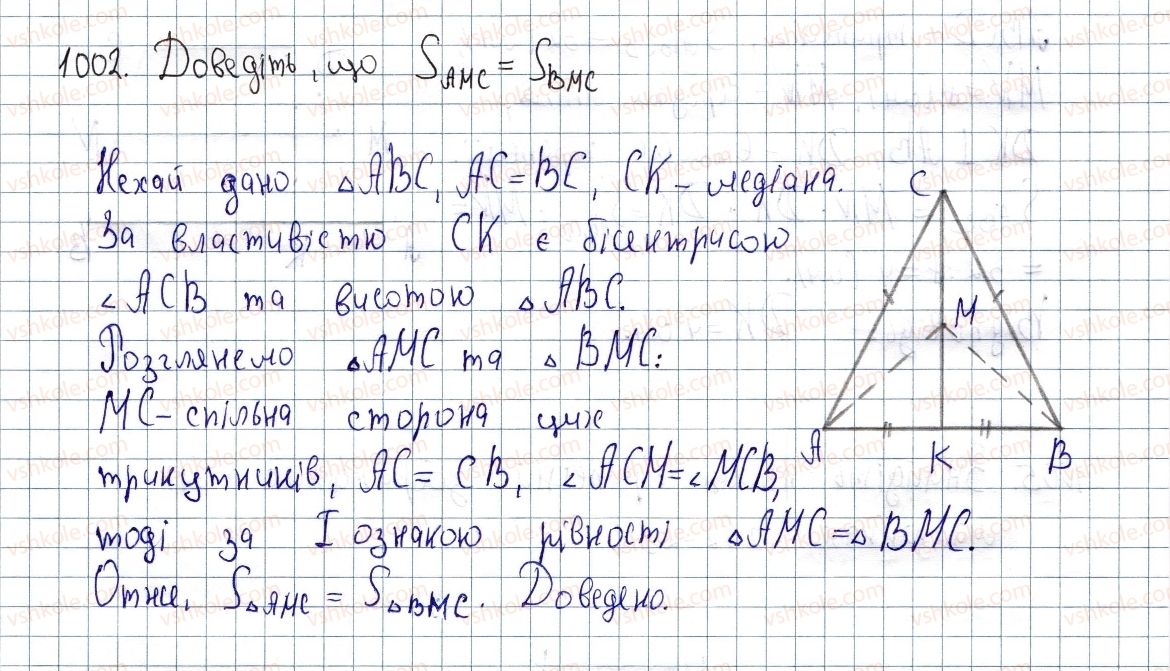 1002. Доведіть, що S_AMC = S_BMC
Нехай дано △ABC, AC=BC, CK - медіана.
За властивістю CK є бісектрисою
∠ACB та висотою △ABC.
Розглянемо △AMC та △BMC:
MC - спільна сторона цих
трикутників, AC = CB, ∠ACM=∠MCB,
тоді за I ознакою рівності △AMC=△BMC.
Отже, S△AMC = S△BMC. Доведено.
C
M
A
K
B
vshkole.com